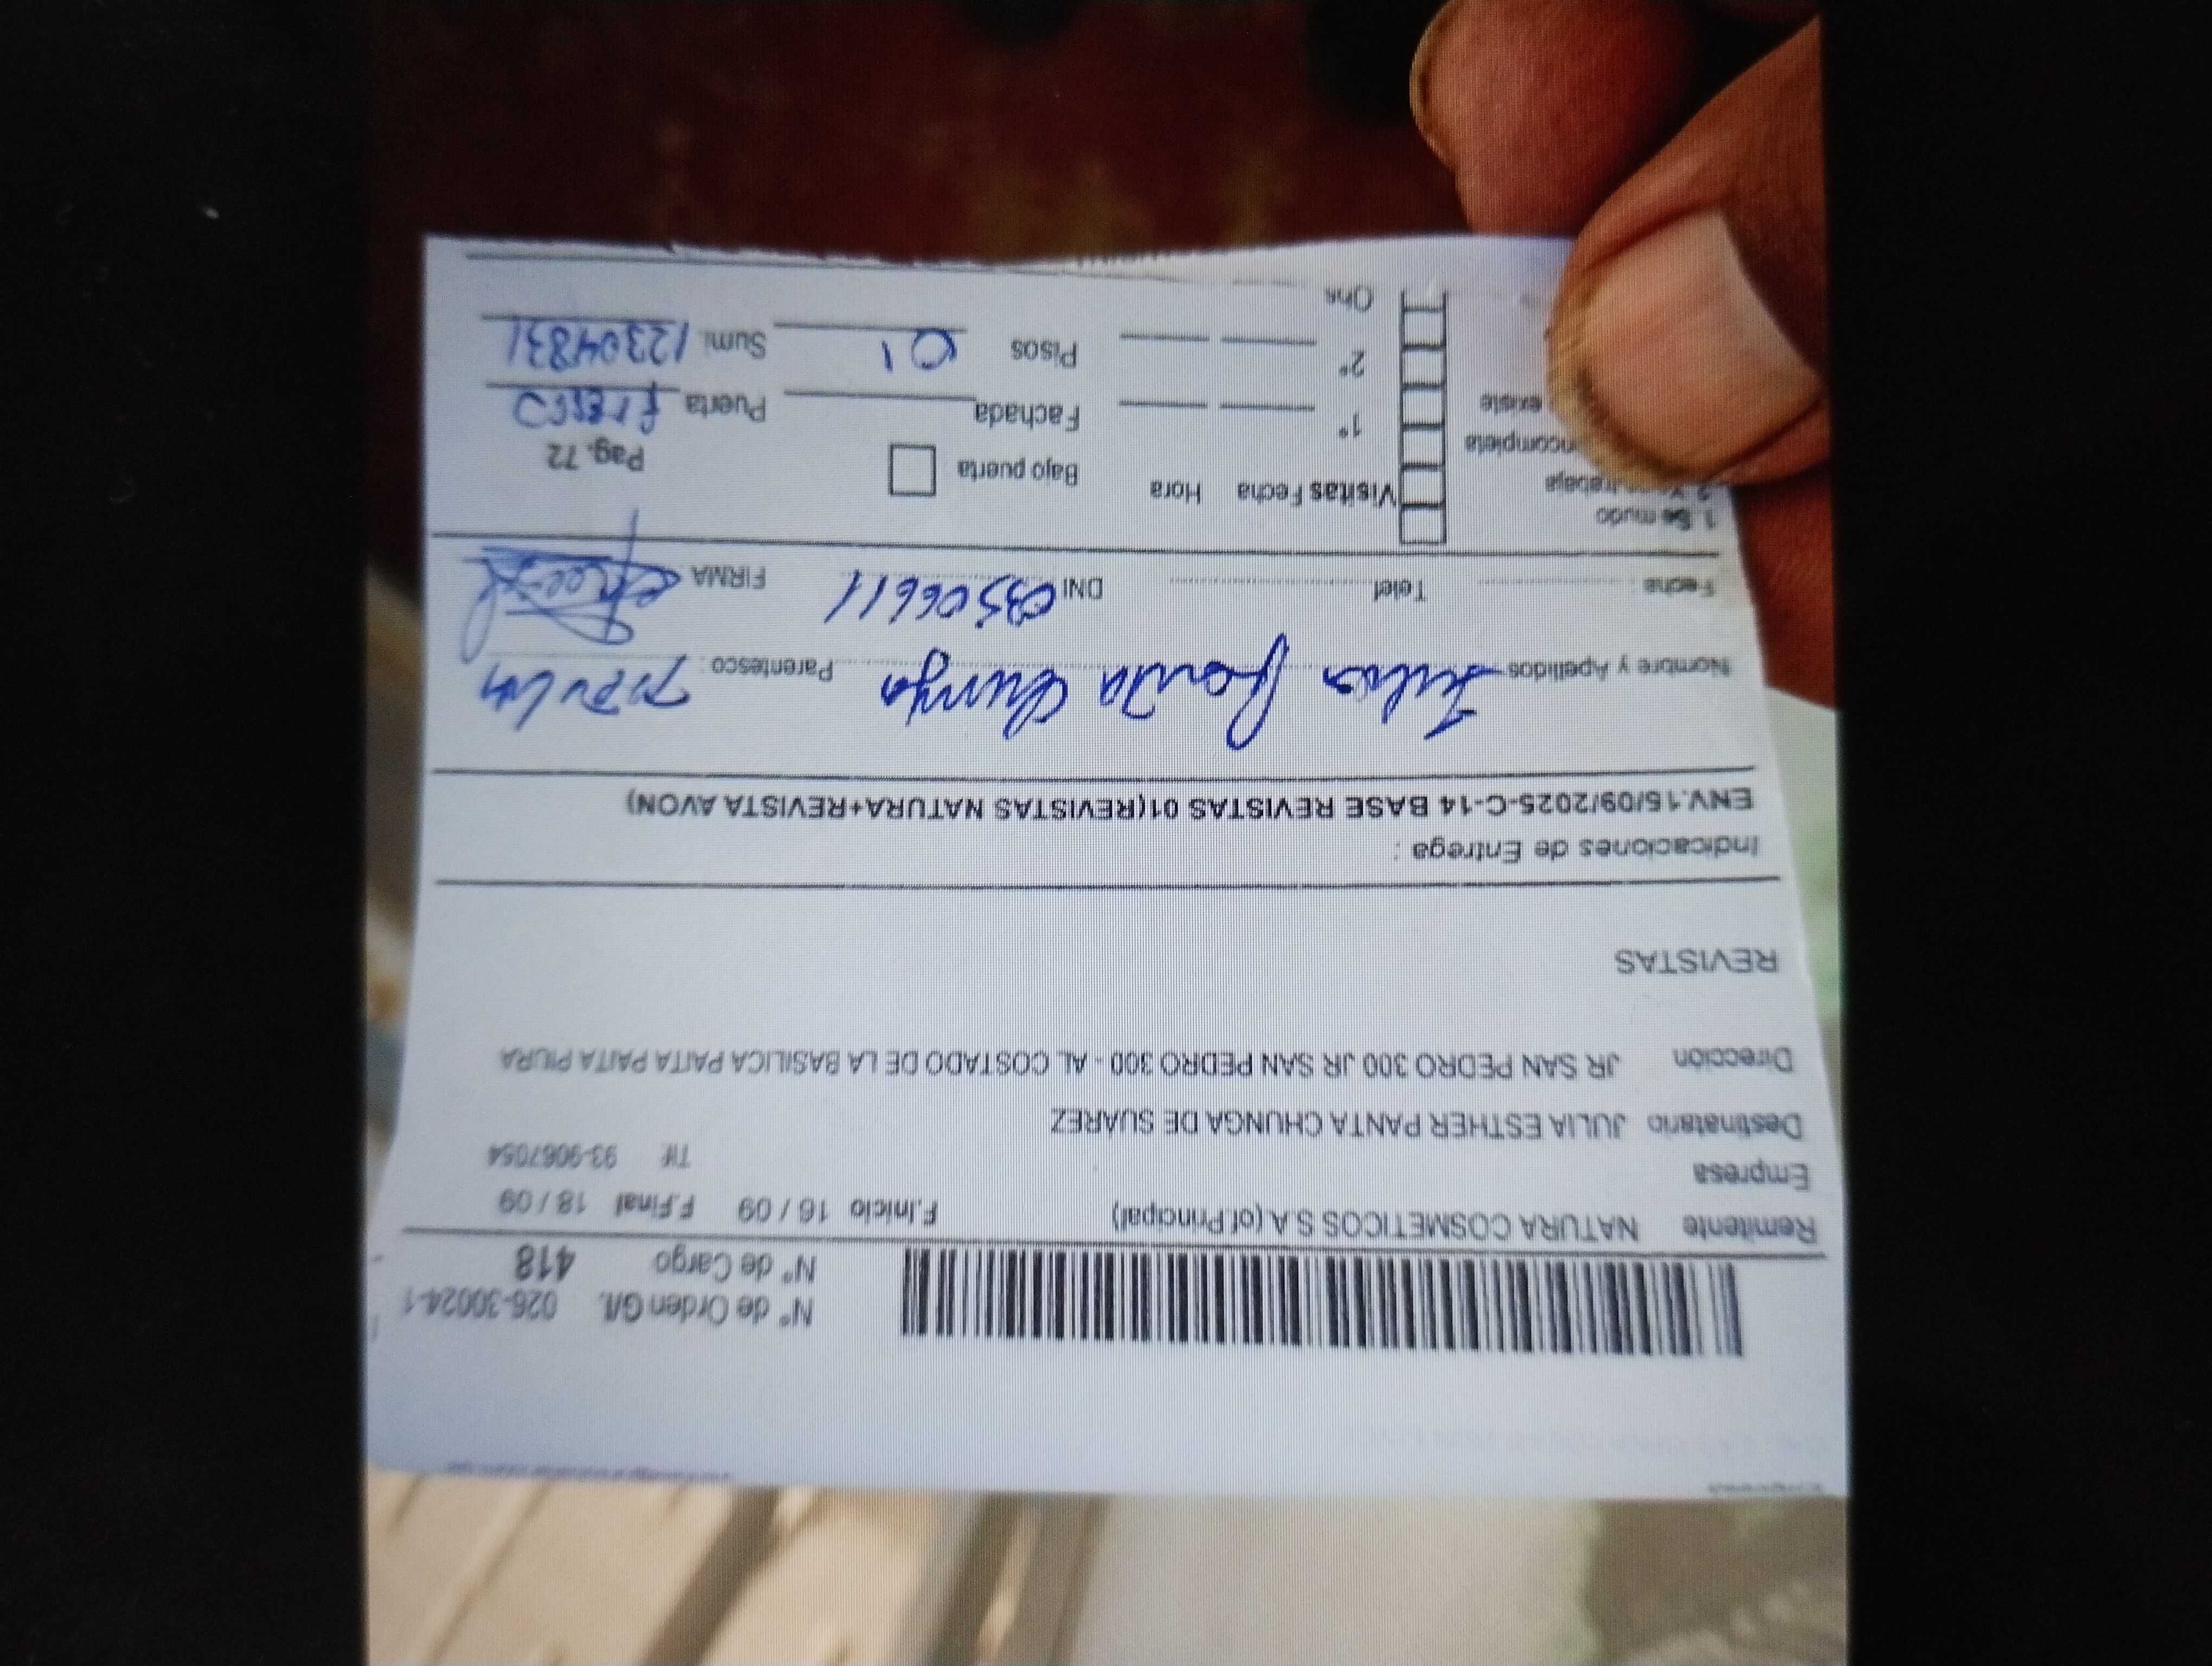 N° de Orden G/I. 026-30024-1
N° de Cargo 418
Remitente NATURA COSMETICOS S.A (of.Principal) F.Inicio 16 / 09 F.Final 18 / 09
Empresa Tlf 93-9067054
Destinatario JULIA ESTHER PANTA CHUNGA DE SUAREZ
Dirección JR SAN PEDRO 300 JR SAN PEDRO 300 - AL COSTADO DE LA BASILICA PAITA PAITA PIURA
REVISTAS
Indicaciones de Entrega :
ENV.15/09/2025-C-14 BASE REVISTAS 01(REVISTAS NATURA+REVISTA AVON)
Nombre y Apellidos Julia Panta Chunga Parentesco : Titular
Fecha : Telef DNI 03506611 FIRMA
1. Se mudo Visitas Fecha Hora Bajo puerta Pag. 72
2. trabaja
incompleta 1° Fachada Puerta fierro
existe 2° Pisos 01 Sumi. 12304831
Obs